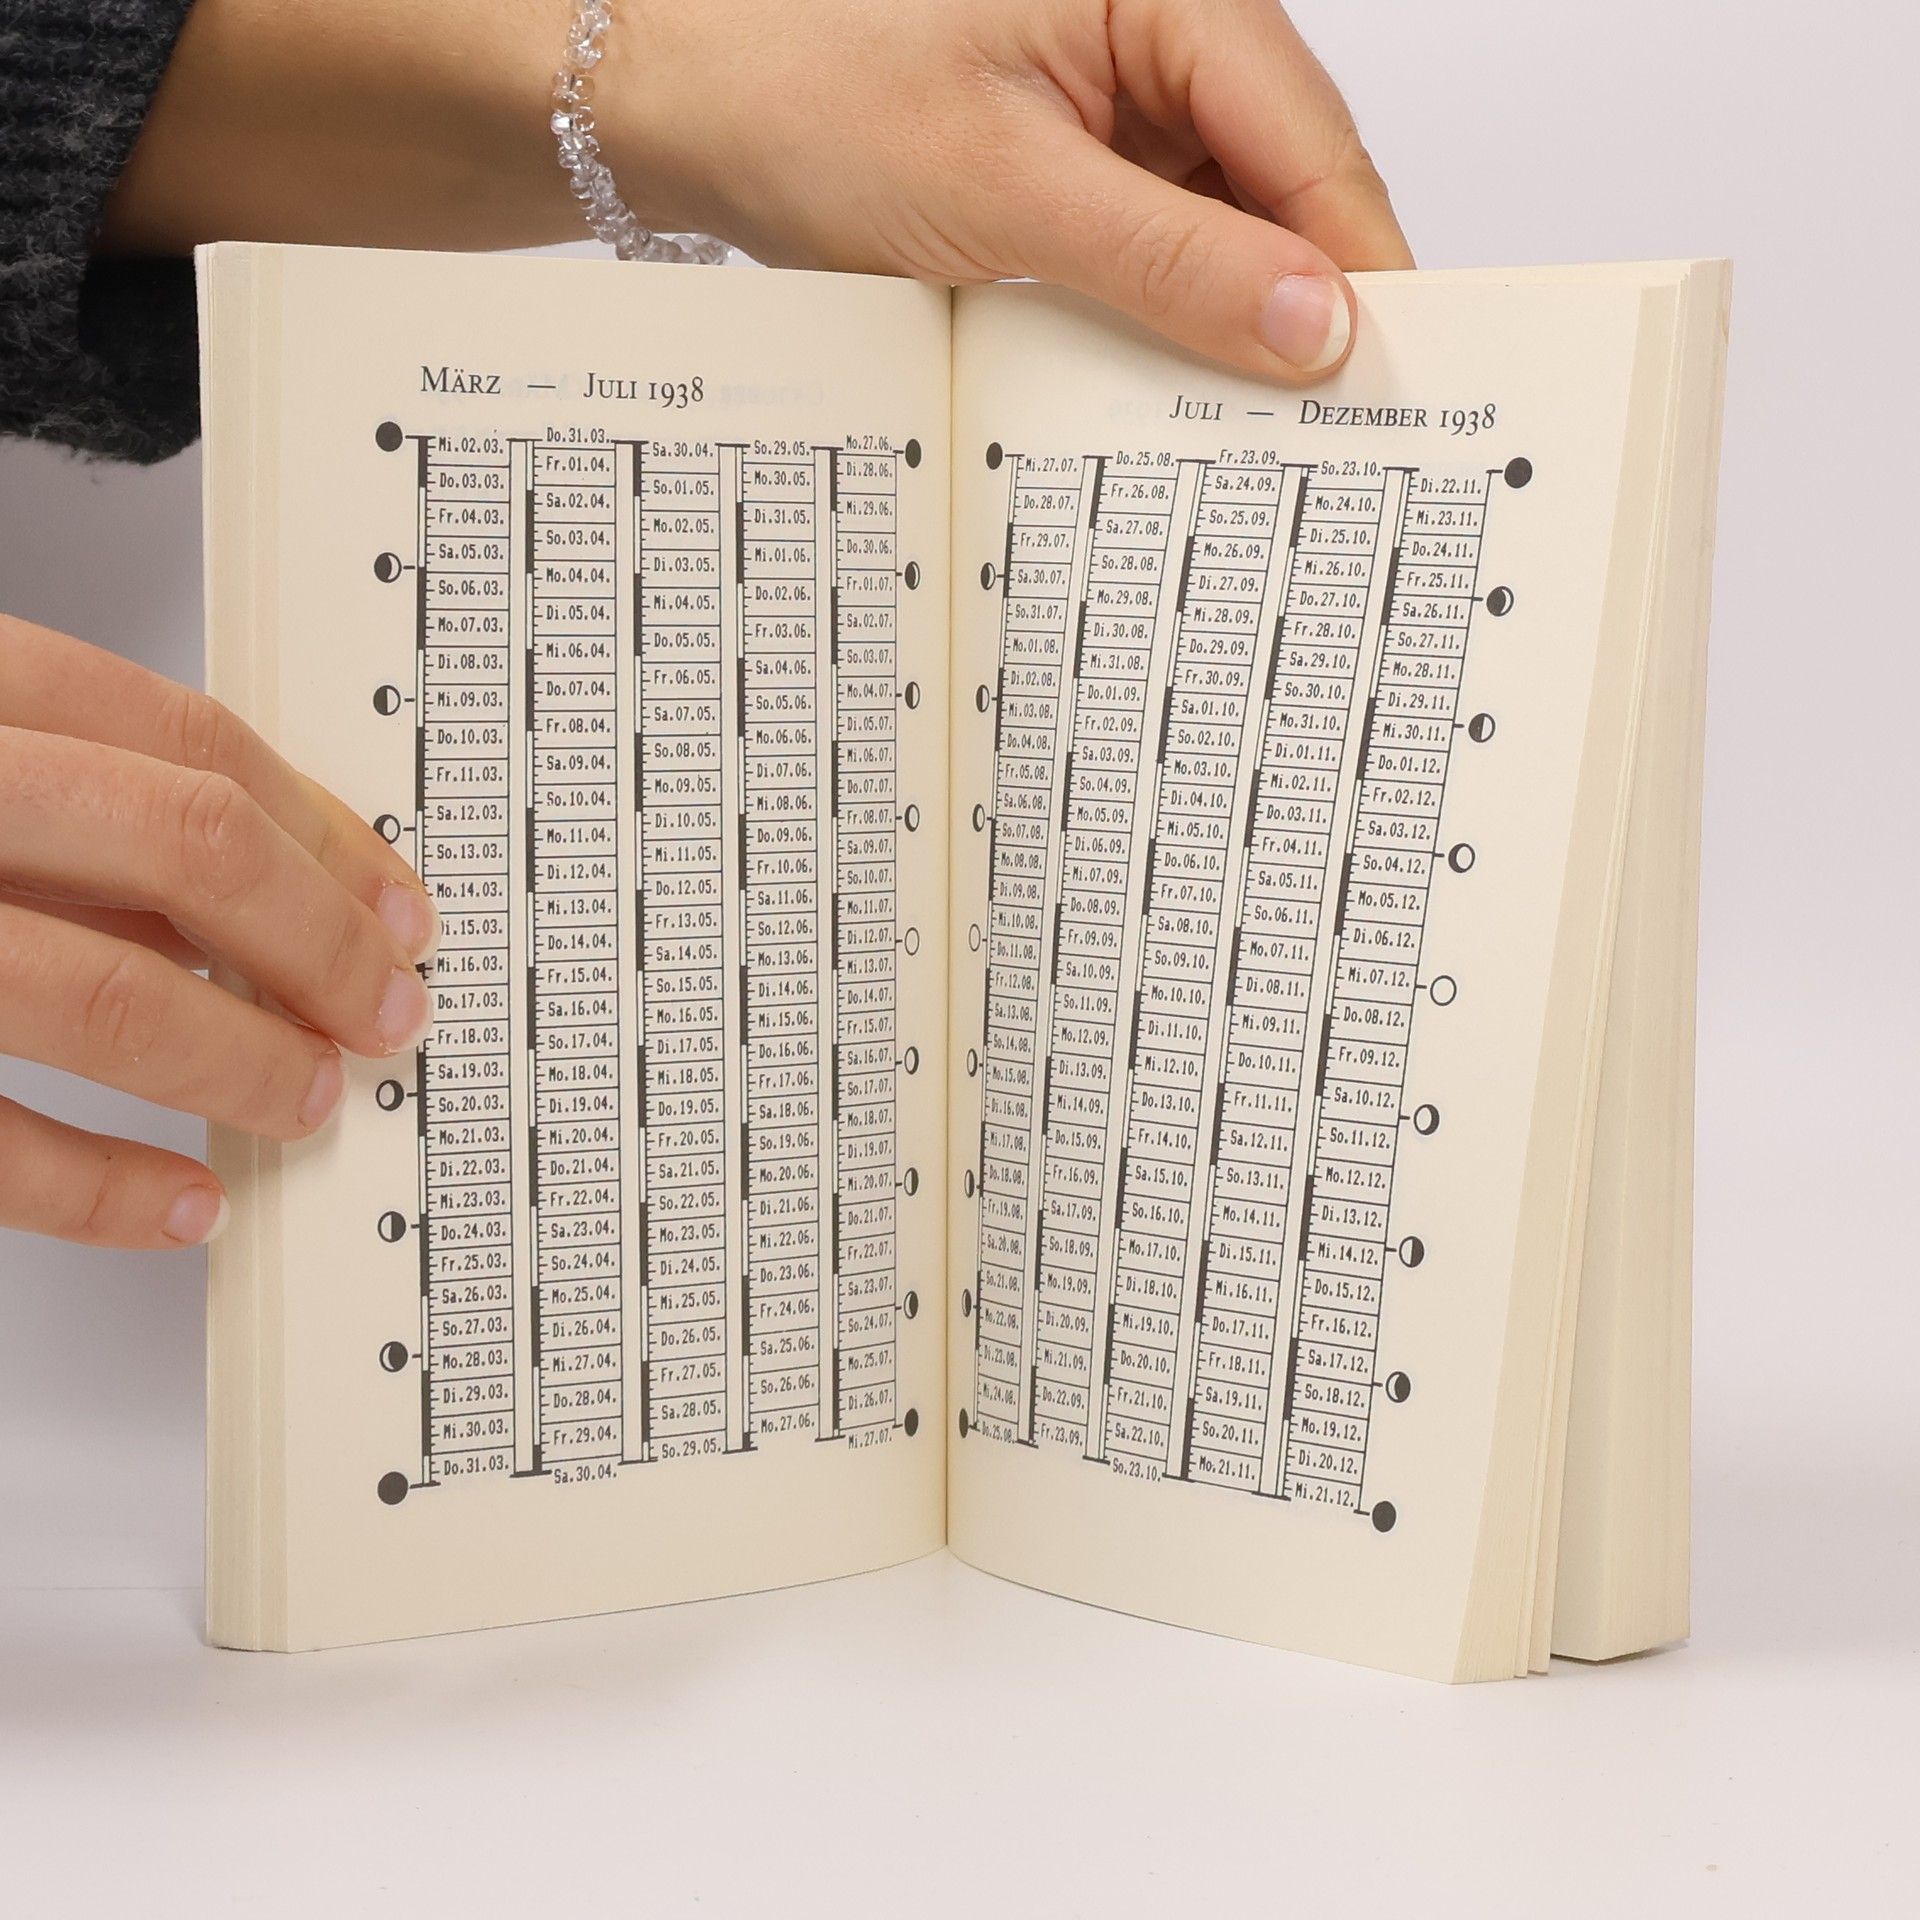 MÄRZ — JULI 1938
Mi.02.03.
Do.03.03.
Fr.04.03.
Sa.05.03.
So.06.03.
Mo.07.03.
Di.08.03.
Mi.09.03.
Do.10.03.
Fr.11.03.
Sa.12.03.
So.13.03.
Mo.14.03.
Di.15.03.
Mi.16.03.
Do.17.03.
Fr.18.03.
Sa.19.03.
So.20.03.
Mo.21.03.
Di.22.03.
Mi.23.03.
Do.24.03.
Fr.25.03.
Sa.26.03.
So.27.03.
Mo.28.03.
Di.29.03.
Mi.30.03.
Do.31.03.
Do.31.03.
Fr.01.04.
Sa.02.04.
So.03.04.
Mo.04.04.
Di.05.04.
Mi.06.04.
Do.07.04.
Fr.08.04.
Sa.09.04.
So.10.04.
Mo.11.04.
Di.12.04.
Mi.13.04.
Do.14.04.
Fr.15.04.
Sa.16.04.
So.17.04.
Mo.18.04.
Di.19.04.
Mi.20.04.
Do.21.04.
Fr.22.04.
Sa.23.04.
So.24.04.
Mo.25.04.
Di.26.04.
Mi.27.04.
Do.28.04.
Fr.29.04.
Sa.30.04.
Sa.30.04.
So.01.05.
Mo.02.05.
Di.03.05.
Mi.04.05.
Do.05.05.
Fr.06.05.
Sa.07.05.
So.08.05.
Mo.09.05.
Di.10.05.
Mi.11.05.
Do.12.05.
Fr.13.05.
Sa.14.05.
So.15.05.
Mo.16.05.
Di.17.05.
Mi.18.05.
Do.19.05.
Fr.20.05.
Sa.21.05.
So.22.05.
Mo.23.05.
Di.24.05.
Mi.25.05.
Do.26.05.
Fr.27.05.
Sa.28.05.
So.29.05.
So.29.05.
Mo.30.05.
Di.31.05.
Mi.01.06.
Do.02.06.
Fr.03.06.
Sa.04.06.
So.05.06.
Mo.06.06.
Di.07.06.
Mi.08.06.
Do.09.06.
Fr.10.06.
Sa.11.06.
So.12.06.
Mo.13.06.
Di.14.06.
Mi.15.06.
Do.16.06.
Fr.17.06.
Sa.18.06.
So.19.06.
Mo.20.06.
Di.21.06.
Mi.22.06.
Do.23.06.
Fr.24.06.
Sa.25.06.
So.26.06.
Mo.27.06.
Mo.27.06.
Di.28.06.
Mi.29.06.
Do.30.06.
Fr.01.07.
Sa.02.07.
So.03.07.
Mo.04.07.
Di.05.07.
Mi.06.07.
Do.07.07.
Fr.08.07.
Sa.09.07.
So.10.07.
Mo.11.07.
Di.12.07.
Mi.13.07.
Do.14.07.
Fr.15.07.
Sa.16.07.
So.17.07.
Mo.18.07.
Di.19.07.
Mi.20.07.
Do.21.07.
Fr.22.07.
Sa.23.07.
So.24.07.
Mo.25.07.
Di.26.07.
Mi.27.07.
JULI — DEZEMBER 1938
Mi.27.07.
Do.28.07.
Fr.29.07.
Sa.30.07.
So.31.07.
Mo.01.08.
Di.02.08.
Mi.03.08.
Do.04.08.
Fr.05.08.
Sa.06.08.
So.07.08.
Mo.08.08.
Di.09.08.
Mi.10.08.
Do.11.08.
Fr.12.08.
Sa.13.08.
So.14.08.
Mo.15.08.
Di.16.08.
Mi.17.08.
Do.18.08.
Fr.19.08.
Sa.20.08.
So.21.08.
Mo.22.08.
Di.23.08.
Mi.24.08.
Do.25.08.
Do.25.08.
Fr.26.08.
Sa.27.08.
So.28.08.
Mo.29.08.
Di.30.08.
Mi.31.08.
Do.01.09.
Fr.02.09.
Sa.03.09.
So.04.09.
Mo.05.09.
Di.06.09.
Mi.07.09.
Do.08.09.
Fr.09.09.
Sa.10.09.
So.11.09.
Mo.12.09.
Di.13.09.
Mi.14.09.
Do.15.09.
Fr.16.09.
Sa.17.09.
So.18.09.
Mo.19.09.
Di.20.09.
Mi.21.09.
Do.22.09.
Fr.23.09.
Fr.23.09.
Sa.24.09.
So.25.09.
Mo.26.09.
Di.27.09.
Mi.28.09.
Do.29.09.
Fr.30.09.
Sa.01.10.
So.02.10.
Mo.03.10.
Di.04.10.
Mi.05.10.
Do.06.10.
Fr.07.10.
Sa.08.10.
So.09.10.
Mo.10.10.
Di.11.10.
Mi.12.10.
Do.13.10.
Fr.14.10.
Sa.15.10.
So.16.10.
Mo.17.10.
Di.18.10.
Mi.19.10.
Do.20.10.
Fr.21.10.
Sa.22.10.
So.23.10.
So.23.10.
Mo.24.10.
Di.25.10.
Mi.26.10.
Do.27.10.
Fr.28.10.
Sa.29.10.
So.30.10.
Mo.31.10.
Di.01.11.
Mi.02.11.
Do.03.11.
Fr.04.11.
Sa.05.11.
So.06.11.
Mo.07.11.
Di.08.11.
Mi.09.11.
Do.10.11.
Fr.11.11.
Sa.12.11.
So.13.11.
Mo.14.11.
Di.15.11.
Mi.16.11.
Do.17.11.
Fr.18.11.
Sa.19.11.
So.20.11.
Mo.21.11.
Di.22.11.
Mi.23.11.
Do.24.11.
Fr.25.11.
Sa.26.11.
So.27.11.
Mo.28.11.
Di.29.11.
Mi.30.11.
Do.01.12.
Fr.02.12.
Sa.03.12.
So.04.12.
Mo.05.12.
Di.06.12.
Mi.07.12.
Do.08.12.
Fr.09.12.
Sa.10.12.
So.11.12.
Mo.12.12.
Di.13.12.
Mi.14.12.
Do.15.12.
Fr.16.12.
Sa.17.12.
So.18.12.
Mo.19.12.
Di.20.12.
Mi.21.12.